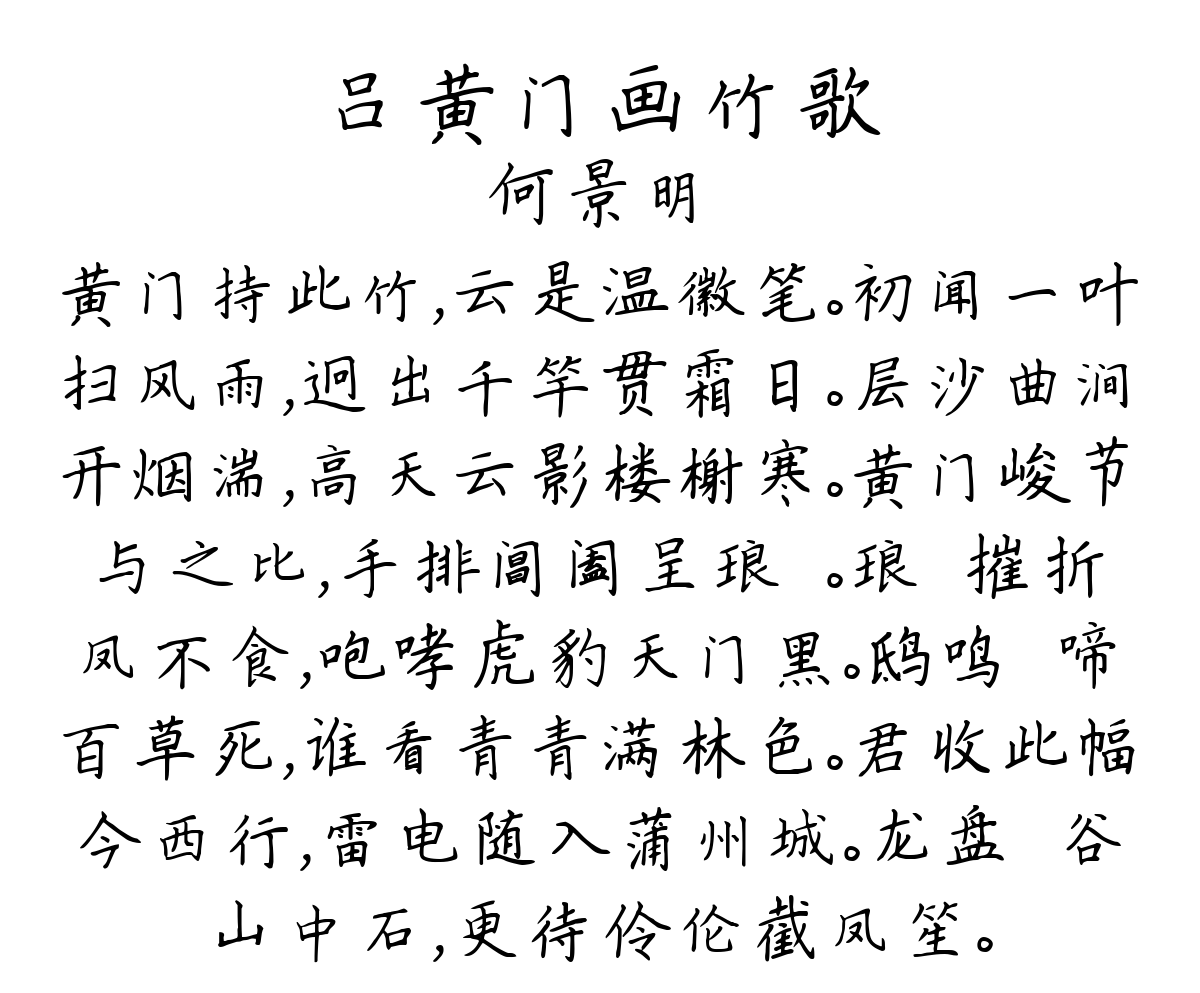 吕黄门画竹歌
何景明
黄门持此竹,云是温徽笔。初闻一叶
扫风雨,迥出千竿贯霜日。层沙曲涧
开烟湍,高天云影楼榭寒。黄门峻节
与之比,手排阊阖呈琅 。琅 摧折
凤不食,咆哮虎豹天门黑。鸱鸣 啼
百草死,谁看青青满林色。君收此幅
今西行,雷电随入蒲州城。龙盘 谷
山中石,更待伶伦截凤笙。